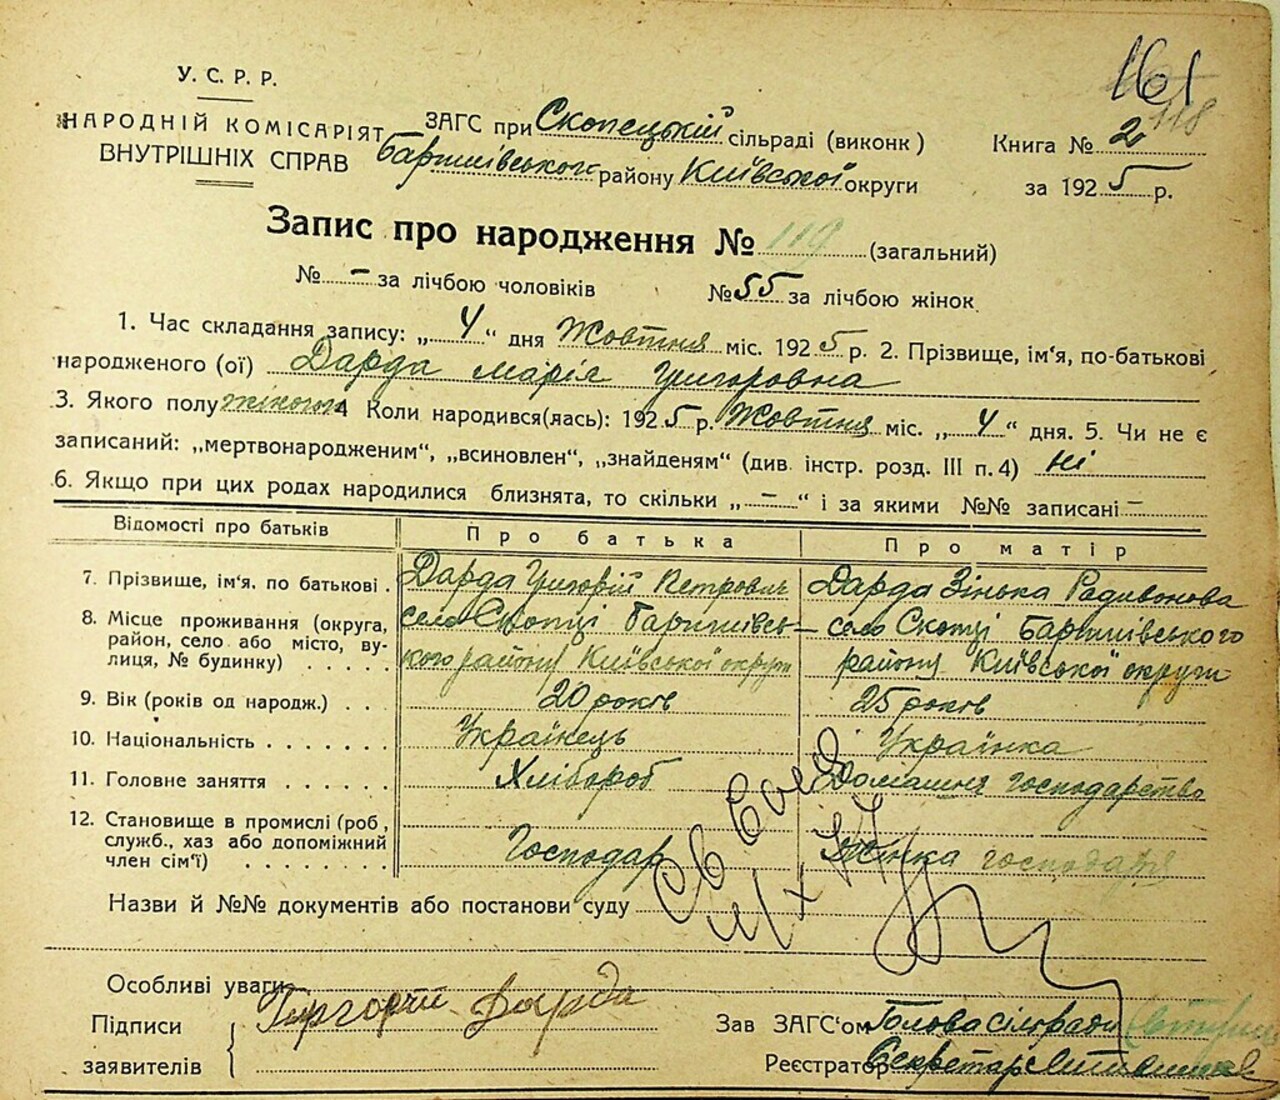 161
118
У. С. Р. Р.
НАРОДНІЙ КОМІСАРІЯТ
ВНУТРІШНІХ СПРАВ
ЗАГС при Скопецькій сільраді (виконк)
Баришівського району Київської округи
Книга № 2
за 1925 р.
Запис про народження № 119 (загальний)
№ – за лічбою чоловіків № 55 за лічбою жінок
1. Час складання запису: „ 4 “ дня Жовтня міс. 1925 р. 2. Прізвище, ім'я, по-батькові
народженого (ої) Дарда Марія Григоровна
3. Якого полу жіного 4 Коли народився(лась): 1925 р. Жовтня міс. „ 4 “ дня. 5. Чи не є
записаний: „мертвонародженим“, „всиновлен“, „знайденям“ (див. інстр. розд. III п. 4) Ні
6. Якщо при цих родах народилися близнята, то скільки „ – “ і за якими №№ записані –
Відомості про батьків Про батька Про матір
7. Прізвище, ім'я, по батькові . Дарда Григорій Петрович Дарда Зінька Радивонова
8. Місце проживання (округа, село Скопці Баришівсь- село Скопці Баришівського
район, село або місто, ву- кого району Київської округи району Київської округи
лиця, № будинку) . . . . .
9. Вік (років од народж.) . . . 20 років 25 років
10. Національність . . . . . . . Українець Українка
11. Головне заняття . . . . . . Хлібороб Домашнє господарство
12. Становище в промислі (роб,
служб., хаз або допоміжний Господар Жінка господаря
член сім'ї) . . . . . . . . .
Назви й №№ документів або постанови суду
Особливі уваги
Підписи Григорій Дарда
заявителів
Зав ЗАГС'ом Голова сільради
Реєстратор Секретар